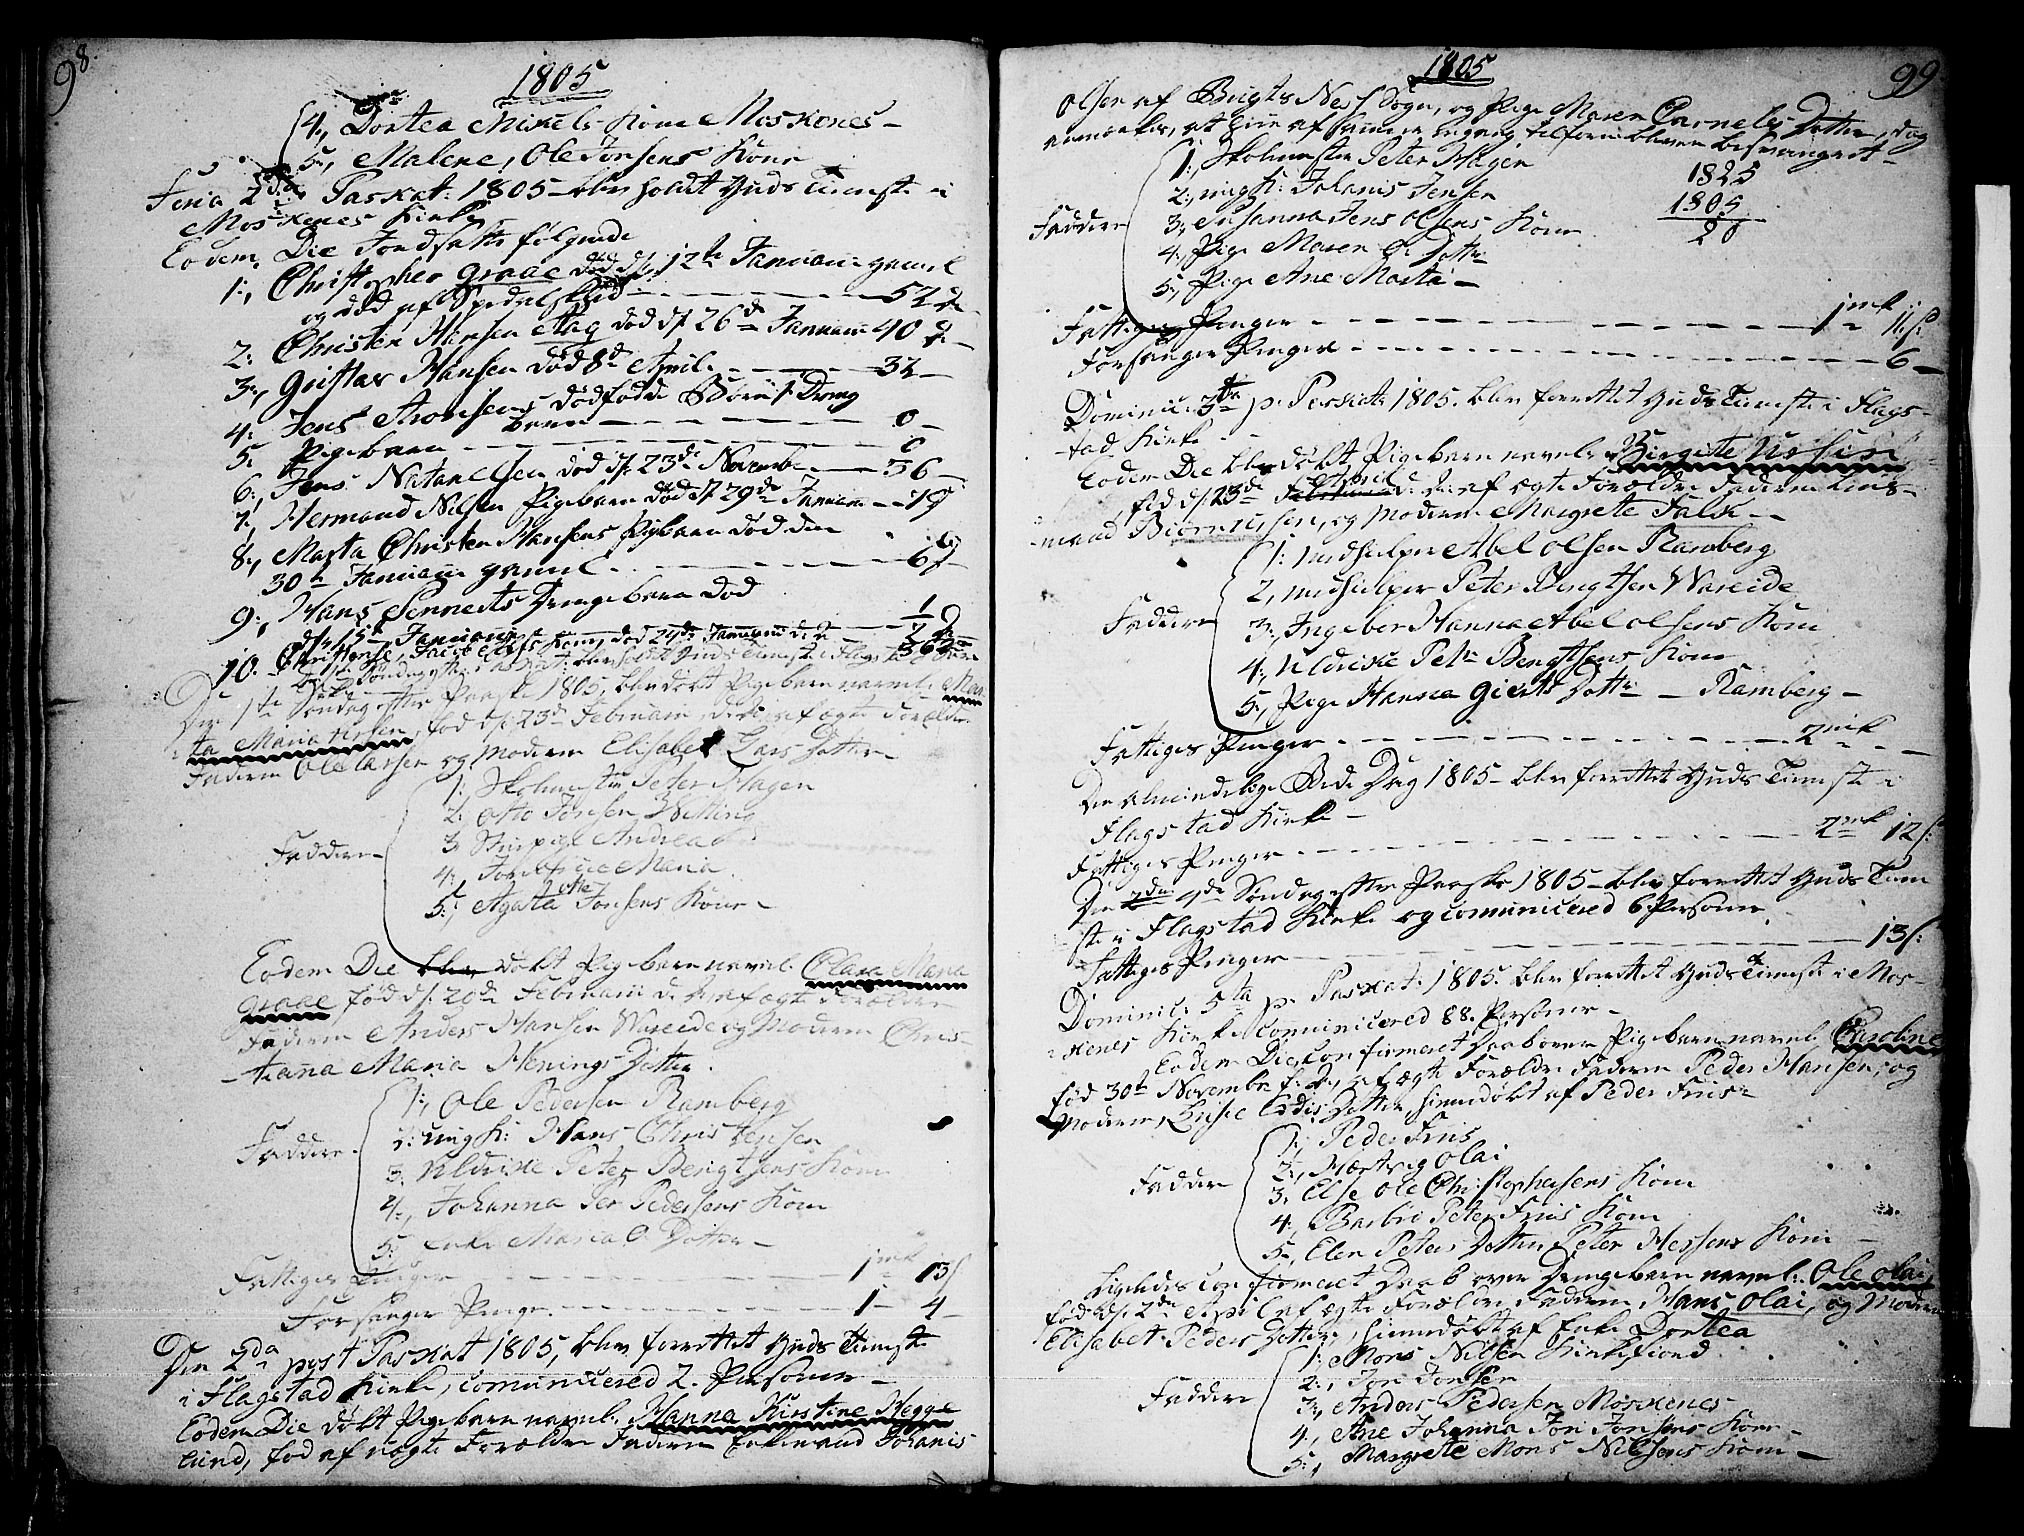 98.
1805
4., Dortea Mikels Kone Moskenes –
5., Malene, Ole Jonsens Kone
Feria 2da Paskat: 1805 – blev holdt Guds Tienneste i
Moskenes Kirke
Eodem Die Jordfatte følgende
1., Christopher Graae død d: 12te Januarii gamel
og død af Spedalskhed – 52
2: Christen Hansen Aag død d: 26de Januarii 40
3., Gustav Hansen død 8de April. – 32 –
4: Jens Aronsens dødfødde Børn 1 Dreng
barn – 0 –
5: Pigebarn – 0
6., Jens Natanelsen død d: 23de Novembr – 36 –
7., Hermand Nilsen Pigebarn død d: 29de Januarii – 19
8., Marta Christen Hansens Pigebarn død den
30te Januarii gamel – 6
9., Hans Sennerts Drengebarn død
d: 15de Januarii
10. Christense, Jacob Kone, død 24de Januarii
Den 1te Søndag efter Paaske 1805, blev døbt Pigebarn navnl: Mar-
ta Maria, fød d: 23de Februarii, ægte Forældre
Faderen Ole Larsen og Moderen Elisabet Lars Dotter –
Faddere
1: Skolmester Peter Hagen
2: Otto Jonsen
3. Andrea
4: Maria
5., Agata Otte Jonsens Kone –
Eodem Die blev døbt Pigebarn navnl: Clara Maria
Graae, fød d: 20de Februarii af ægte Forældre
Faderen Anders Hansen Wareide og Moderen Chris-
tianna Maria Henings Dotter.
Faddere
1., Ole Pedersen Ramberg
2: ungk: Hans Christensen
3. Uldrike Peter Bengtsens Kone
4., Johanna Per Pedersens Kone
5: Enke Maria O: Dotter –
Fattiges Penger – 1 mk 13 s
Forsanger Penge. – 1 – 4 –
Den 2da post Paskat 1805, blev forrettet Guds Tienneste
i Flagstad Kirke, comunicered 2. Personer –
Eodem Die døbt Pigebarn navnl: Hanna Kirstine Hegge-
lund, fød af uægte Forældre Faderen Enkemand Johanis
99
1805
Olsen af Sogn, og Pige Maren Cornelis Dotter, dog
anmærkes, at hun af samme engang tilforn bleven besvangret –
Faddere
1., Skolmester Peter Hagen
2., ungk: Johanis Jensen
3., Susanna Jens Olsens Kone
4., Pige Maren E: Dotter
5., Pige Ane Marta –
1825
1805
20
Fattiges Penger – 1 mk 11 s
Forsanger Penger – 6 –
Dominic: 3tia p. Paskat: 1805. blev forrettet Guds Tienneste i Flags-
tad Kirke
Eodem Die blev døbt Pigebarn navnl: Birgitte
fød d: 23de April af ægte Forældre Faderen
og Moderen Margrete Falck –
Faddere
1: Medhielper Abel Olsen Ramberg
2, Medhielper Peter Bengtsen Wareide
3., Ingeber Hanna Abel Olsens Kone
4., Uldrike Peter Bengtsens Kone
5., Pige Hanna Gierts Dotter – Ramberg –
Fattiges Penger – 2 mk –
Den Almindelige Bede Dag 1805 – blev forrettet Guds Tienneste i
Flagstad Kirke –
Fattiges Penger – 2 mk 12 s
Den 4de Søndag efter Paaske 1805 – blev forrettet Guds Tienne-
ste i Flagstad Kirke og comunicered 6 Personer.
Fattiges Penger – 13 s:
Dominic: 5ta p. Paskat: 1805. blev forrettet Guds Tienneste i Mos-
kenes Kirke comunicered 88. Personer –
Eodem Die, Confirmeret Daab over Pigebarn navnl: Caroline
fød 30te Novembr af ægte Forældre Faderen Peder Hansen, og
Moderen Dotter, hiemmedøbt af Peder Friis
Faddere
1., Peder Friis
2., Hartvig Olai
3., Else Ole Christophersens Kone
4., Barbro Peter Friis Kone
5., Elen Peters Dotter Peter Hessens Kone –
Ligeledes Confirmeret Daab over Drengebarn navnl: Ole Olai,
fød d: 2de April af ægte Forældre Faderen Hans Olai, og Moderen
Elisabet Peders Dotter, hiemmedøbt af Enke Dortea
Faddere
1., Mons Nilsen Kirkefiord
2., Jon Jonsen
3., Anders Pedersen Moskenes
4., Ane Johanna Jon Jonsens Kone –
5., Margrete Mons Nilsens Kone –